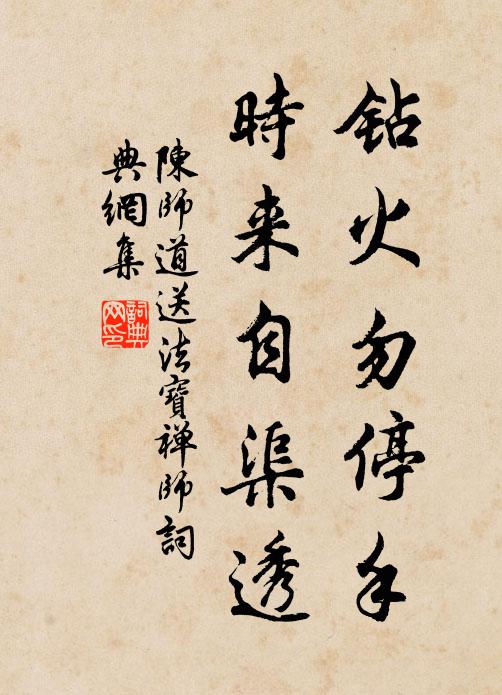 钻火勿停手
時来自渠透
陳師道送法寶禅師詞
典網集
詞典网印